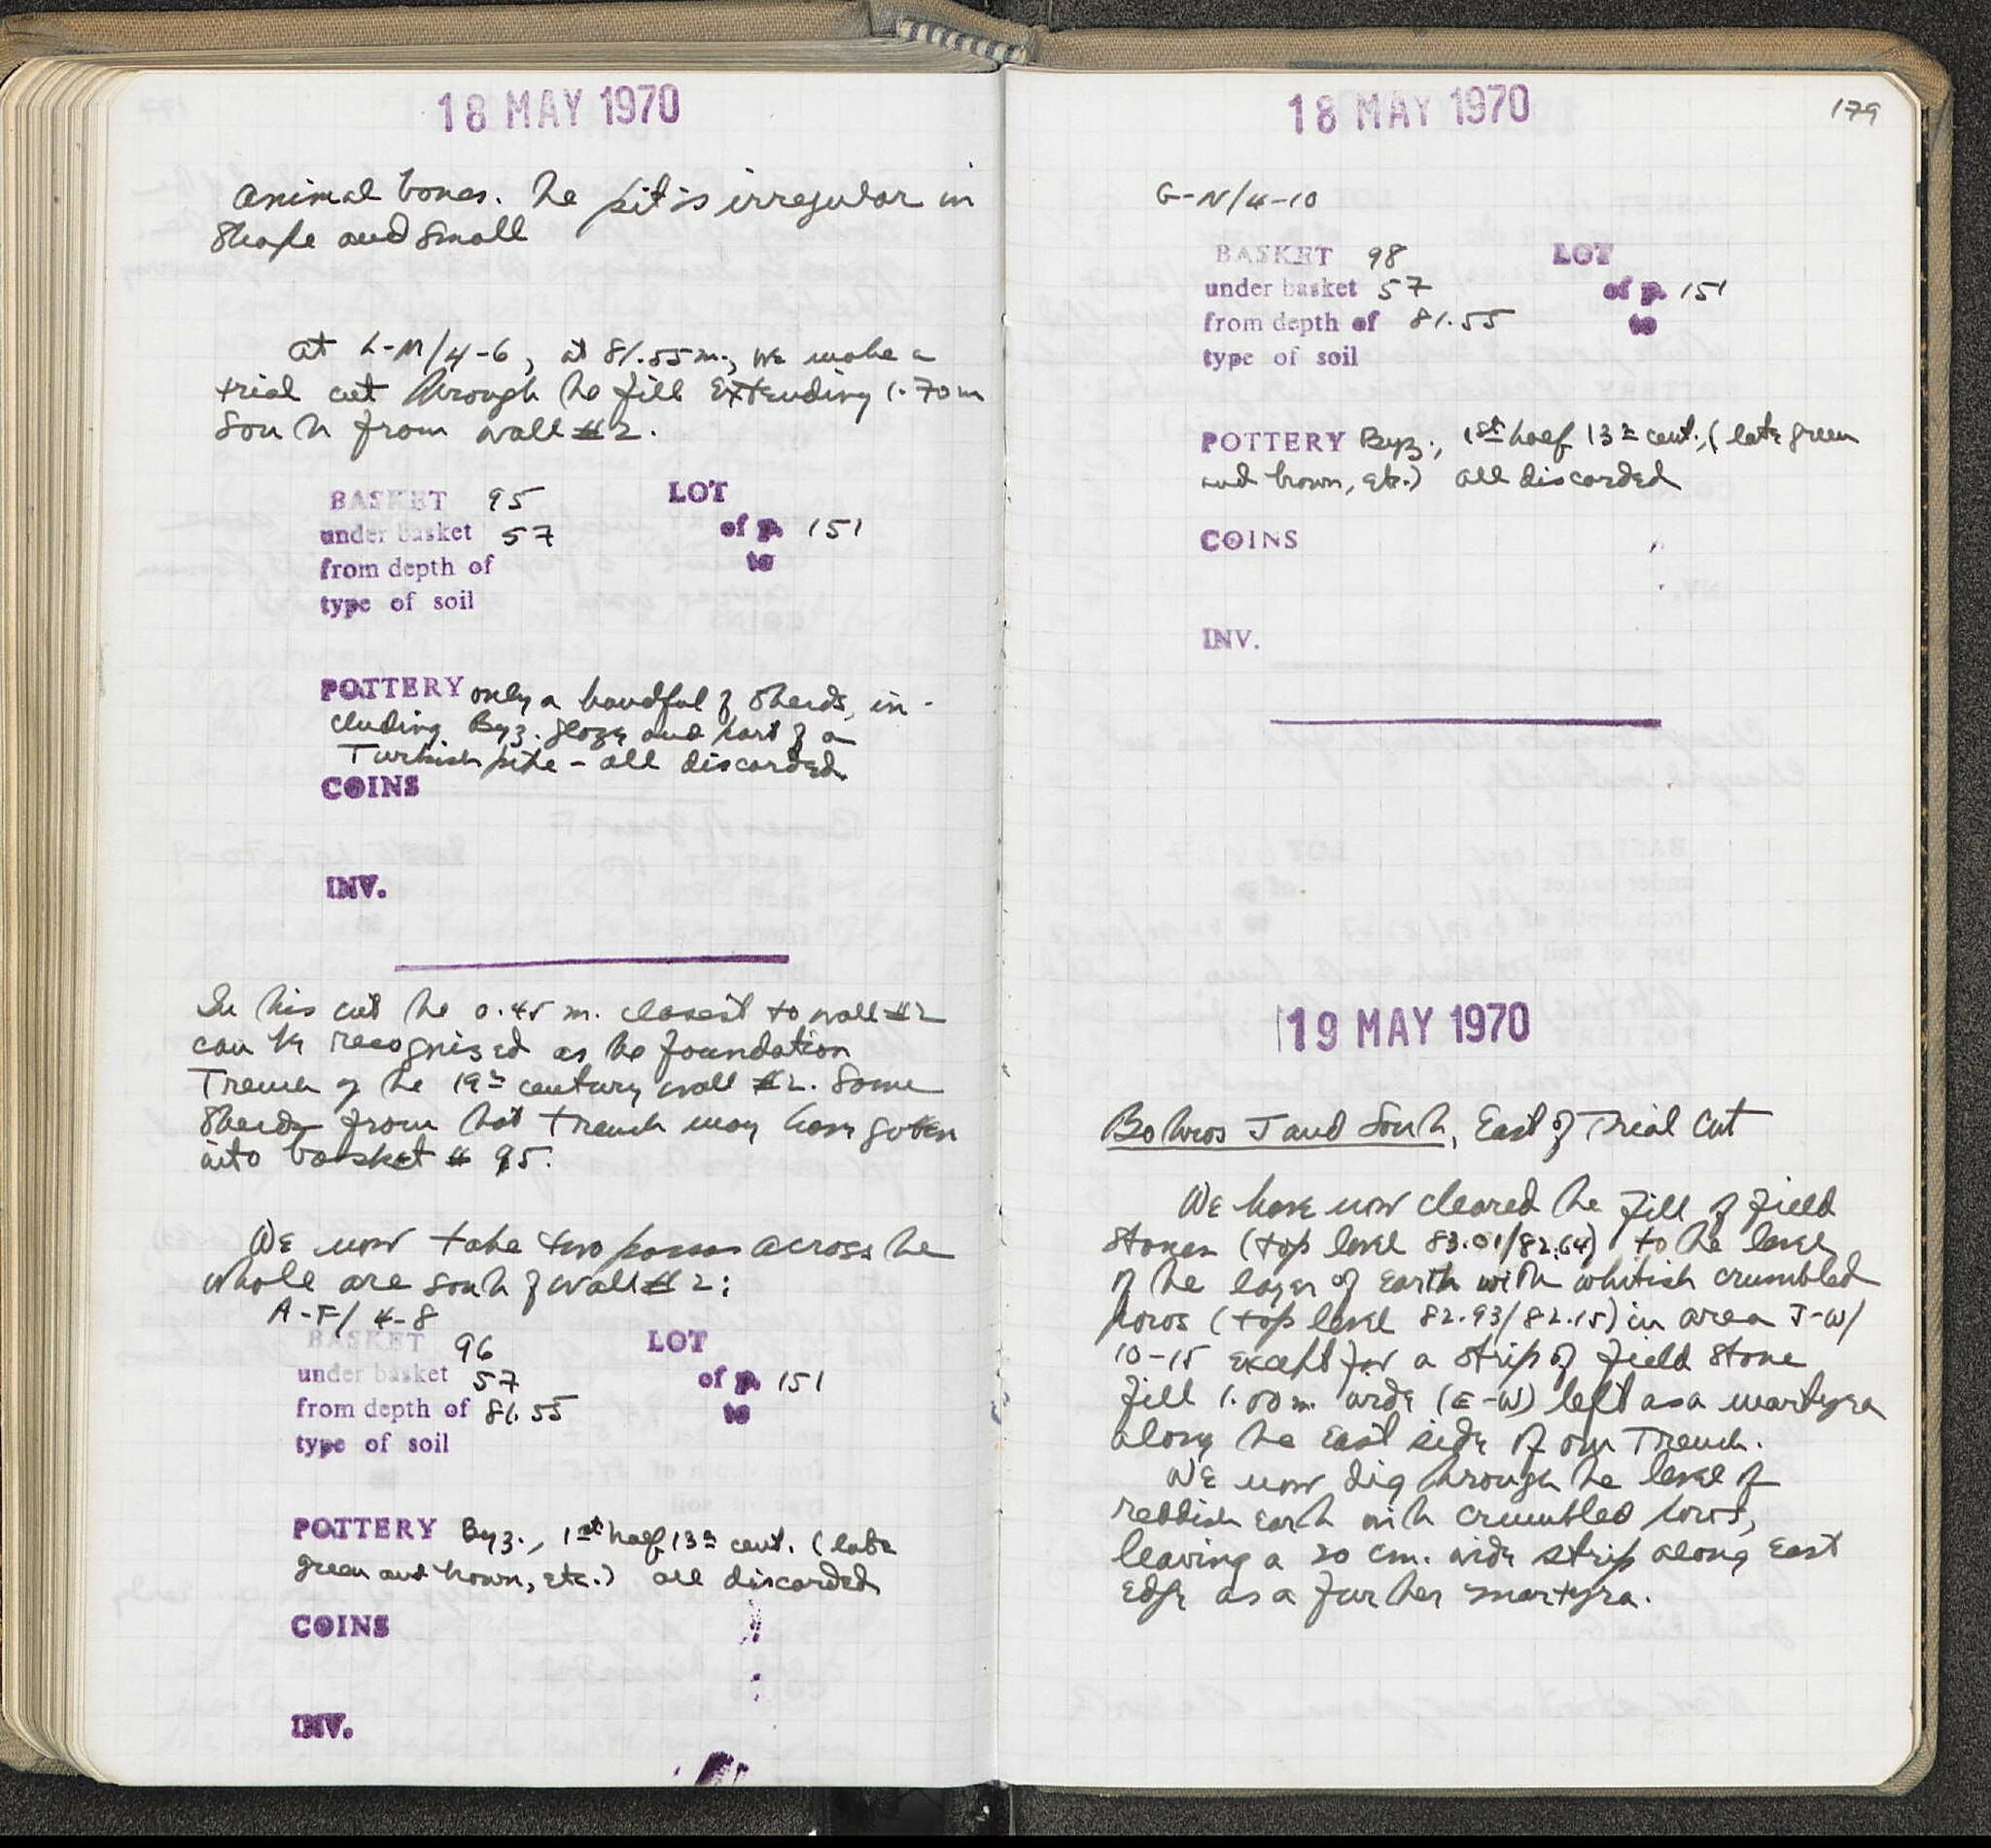 18 MAY 1970
animal bones. The pit is irregular in
shape and small
At L-M/4-6, at 81.55 m., we make a
trial cut through the fill extending 1.70 m
South from wall #2.
BASKET 95 LOT
under basket 57 of p. 151
from depth of to
type of soil
POTTERY only a handful of sherds, in-
cluding Byz. glaze and part of a
Turkish pipe - all discarded
COINS
INV.
In this cut the 0.45 m. closest to wall #2
can be recognized as the foundation
Trench of the 19th century wall #2. Some
Sherds from that trench may have gotten
into basket # 95.
We now take two passes across the
whole are south of wall #2:
A-F/4-8
BASKET 96 LOT
under basket 57 of p. 151
from depth of 81.55 to
type of soil
POTTERY Byz., 1st half 13th cent. (late
green and brown, etc.) all discarded
COINS
INV.
18 MAY 1970
179
G-N/4-10
BASKET 98 LOT
under basket 57 of p. 151
from depth of 81.55 to
type of soil
POTTERY Byz., 1st half 13th cent., (late green
and brown, etc.) all discarded
COINS
INV.
19 MAY 1970
Bothros J and South, East of Trial Cut
We have now cleared the fill of field
stones (top level 83.01/82.64) to the level
of the layer of earth with whitish crumbled
poros (top level 82.93/82.15) in area J-W/
10-15 except for a strip of field stone
fill 1.00 m. wide (E-W) left as a martyra
along the East side of our Trench.
We now dig through the level of
reddish earth with crumbled poros,
leaving a 20 cm. wide strip along East
Edge as a further martyra.